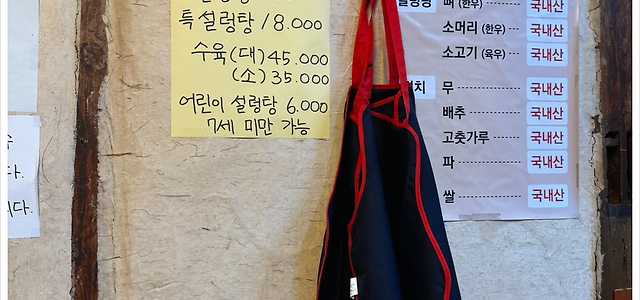 특 설렁탕 18.000
수육(대) 45.000
(소) 35.000
어린이 설렁탕 6.000
7세 미만 가능
다.
니다.
뼈 (한우) 국내산
소머리 (한우) 국내산
소고기 (육우) 국내산
무 국내산
배추 국내산
고춧가루 국내산
파 국내산
쌀 국내산